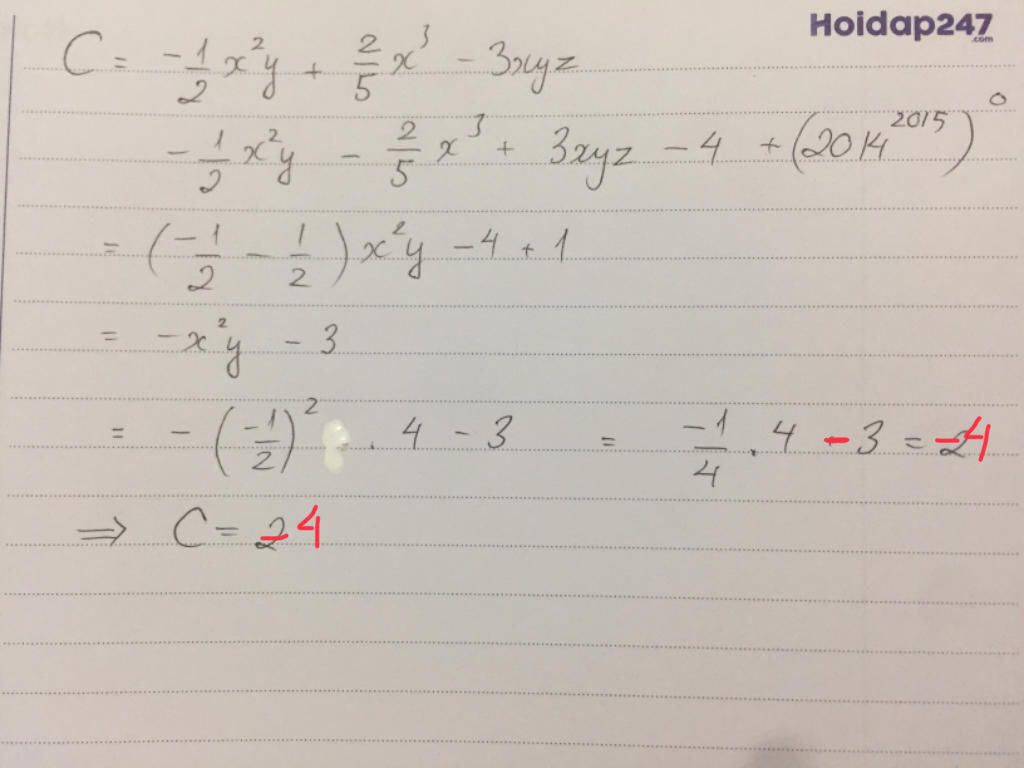 Hoidap247
.com
C = -1/2 x²y + 2/5 x³ - 3xyz
- 1/2 x²y - 2/5 x³ + 3xyz - 4 + (2014²⁰¹⁵)⁰
= (-1/2 - 1/2) x²y - 4 + 1
= -x²y - 3
= - (-1/2)² . 4 - 3 = -1/4 . 4 - 3 = -4
⇒ C = -4